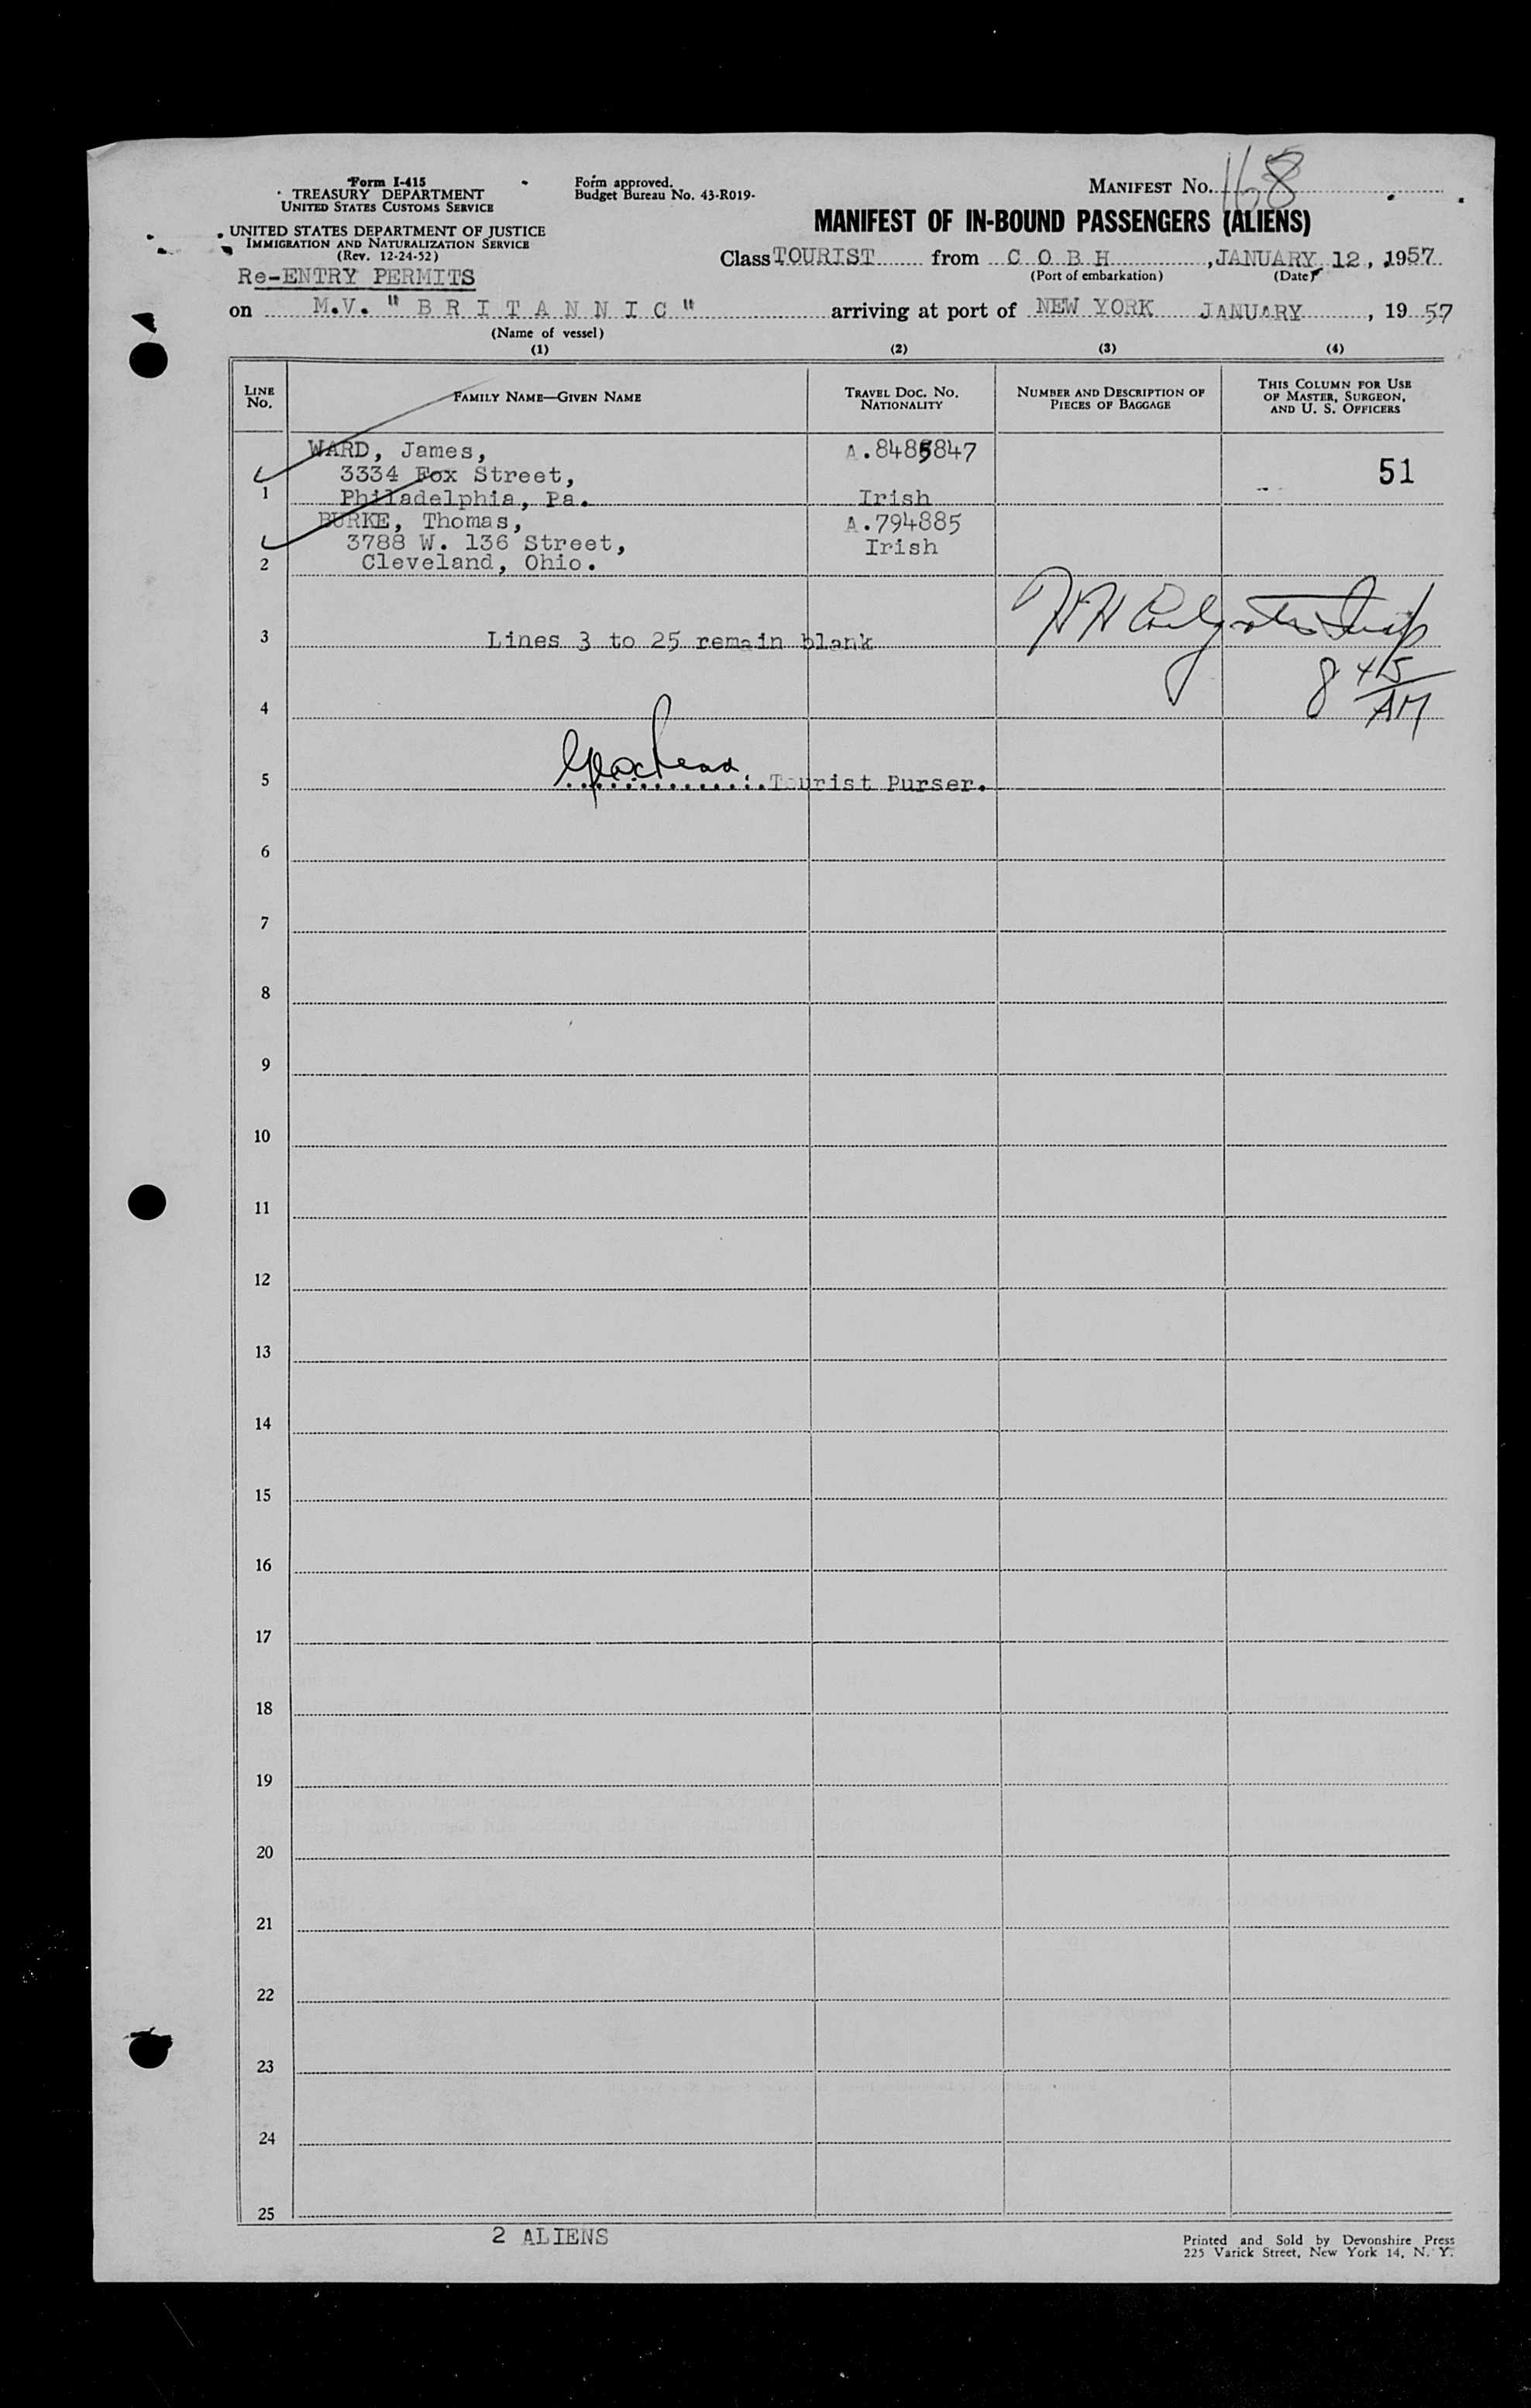 Form I-415
TREASURY DEPARTMENT
UNITED STATES CUSTOMS SERVICE
UNITED STATES DEPARTMENT OF JUSTICE
IMMIGRATION AND NATURALIZATION SERVICE
(Rev. 12-24-52)
Re-ENTRY PERMITS
Form approved.
Budget Bureau No. 43-R019-
MANIFEST No. 168
MANIFEST OF IN-BOUND PASSENGERS (ALIENS)
Class TOURIST from C O B H , JANUARY 12, 1957
(Port of embarkation) (Date)
on M.V. "B R I T A N N I C" arriving at port of NEW YORK JANUARY , 19 57
(Name of vessel)
(1) (2) (3) (4)
LINE No. FAMILY NAME—GIVEN NAME TRAVEL DOC. NO. NATIONALITY NUMBER AND DESCRIPTION OF PIECES OF BAGGAGE THIS COLUMN FOR USE OF MASTER, SURGEON, AND U. S. OFFICERS
WARD, James, A.8485847
3334 Fox Street, 51
1 Philadelphia, Pa. Irish
BURKE, Thomas, A.794885
3788 W. 136 Street, Irish
2 Cleveland, Ohio.
3 Lines 3 to 25 remain blank
8 45 AM
4
5 Tourist Purser.
6
7
8
9
10
11
12
13
14
15
16
17
18
19
20
21
22
23
24
25
2 ALIENS
Printed and Sold by Devonshire Press
225 Varick Street, New York 14, N. Y.